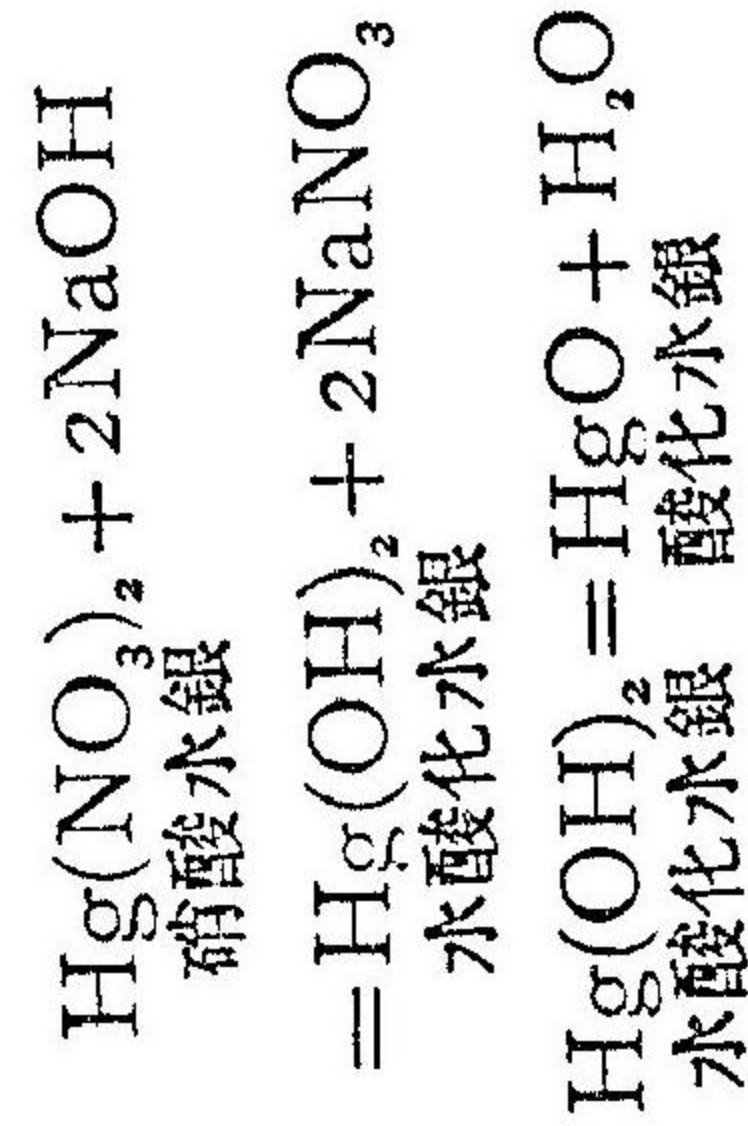 Hg(NO₃)₂ + 2NaOH
硝酸水銀
= Hg(OH)₂ + 2NaNO₃
水酸化水銀
Hg(OH)₂ = HgO + H₂O
水酸化水銀 酸化水銀